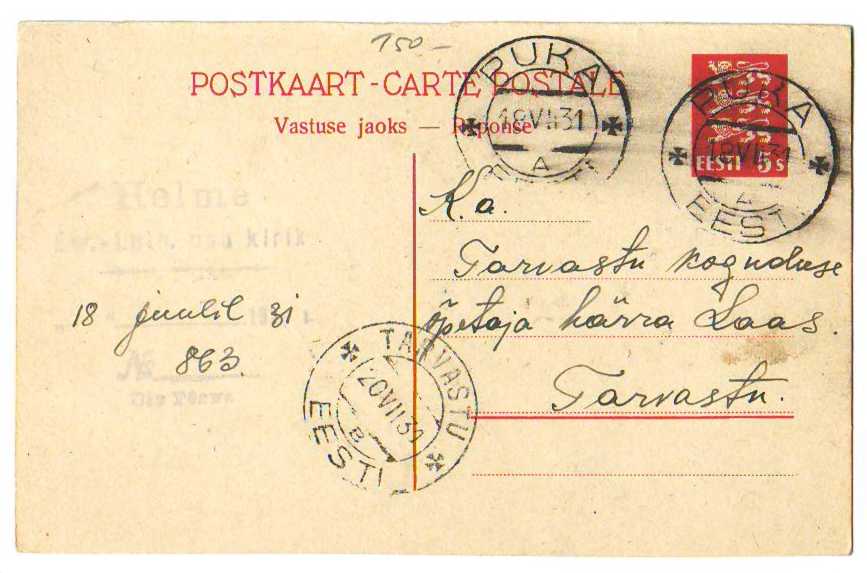 150-
POSTKAART - CARTE POSTALE
Vastuse jaoks — Réponse
PUKA
18 VII 31
A
EESTI
PUKA
18 VII 31
A
EESTI
EESTI 5 S
Helme
Ev.-Luth. usu kirik
18 juulil 31
№ 863.
K. a.
Tarvastu koguduse
õpetaja härra Laas.
Tarvastu.
TARVASTU
20 VII 31
B
EESTI